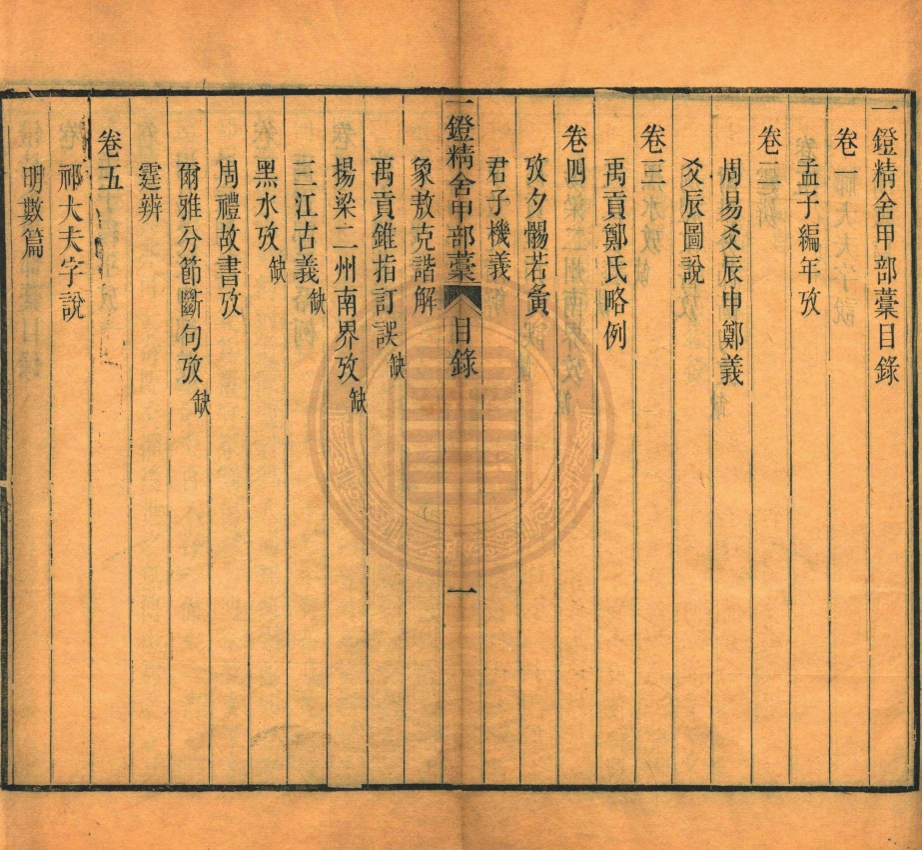 一鐙精舍甲部藁目錄
卷一
孟子編年攷
卷二
周易爻辰申鄭義
爻辰圖說
卷三
禹貢鄭氏略例
卷四
攷夕惕若夤
君子機義
一鐙精舍甲部藁 目錄 一
象敖克諧解
禹貢錐指訂誤 缺
揚梁二州南界攷 缺
三江古義 缺
黑水攷 缺
周禮故書攷
爾雅分節斷句攷 缺
霆辨
卷五
祁大夫字說
明數篇